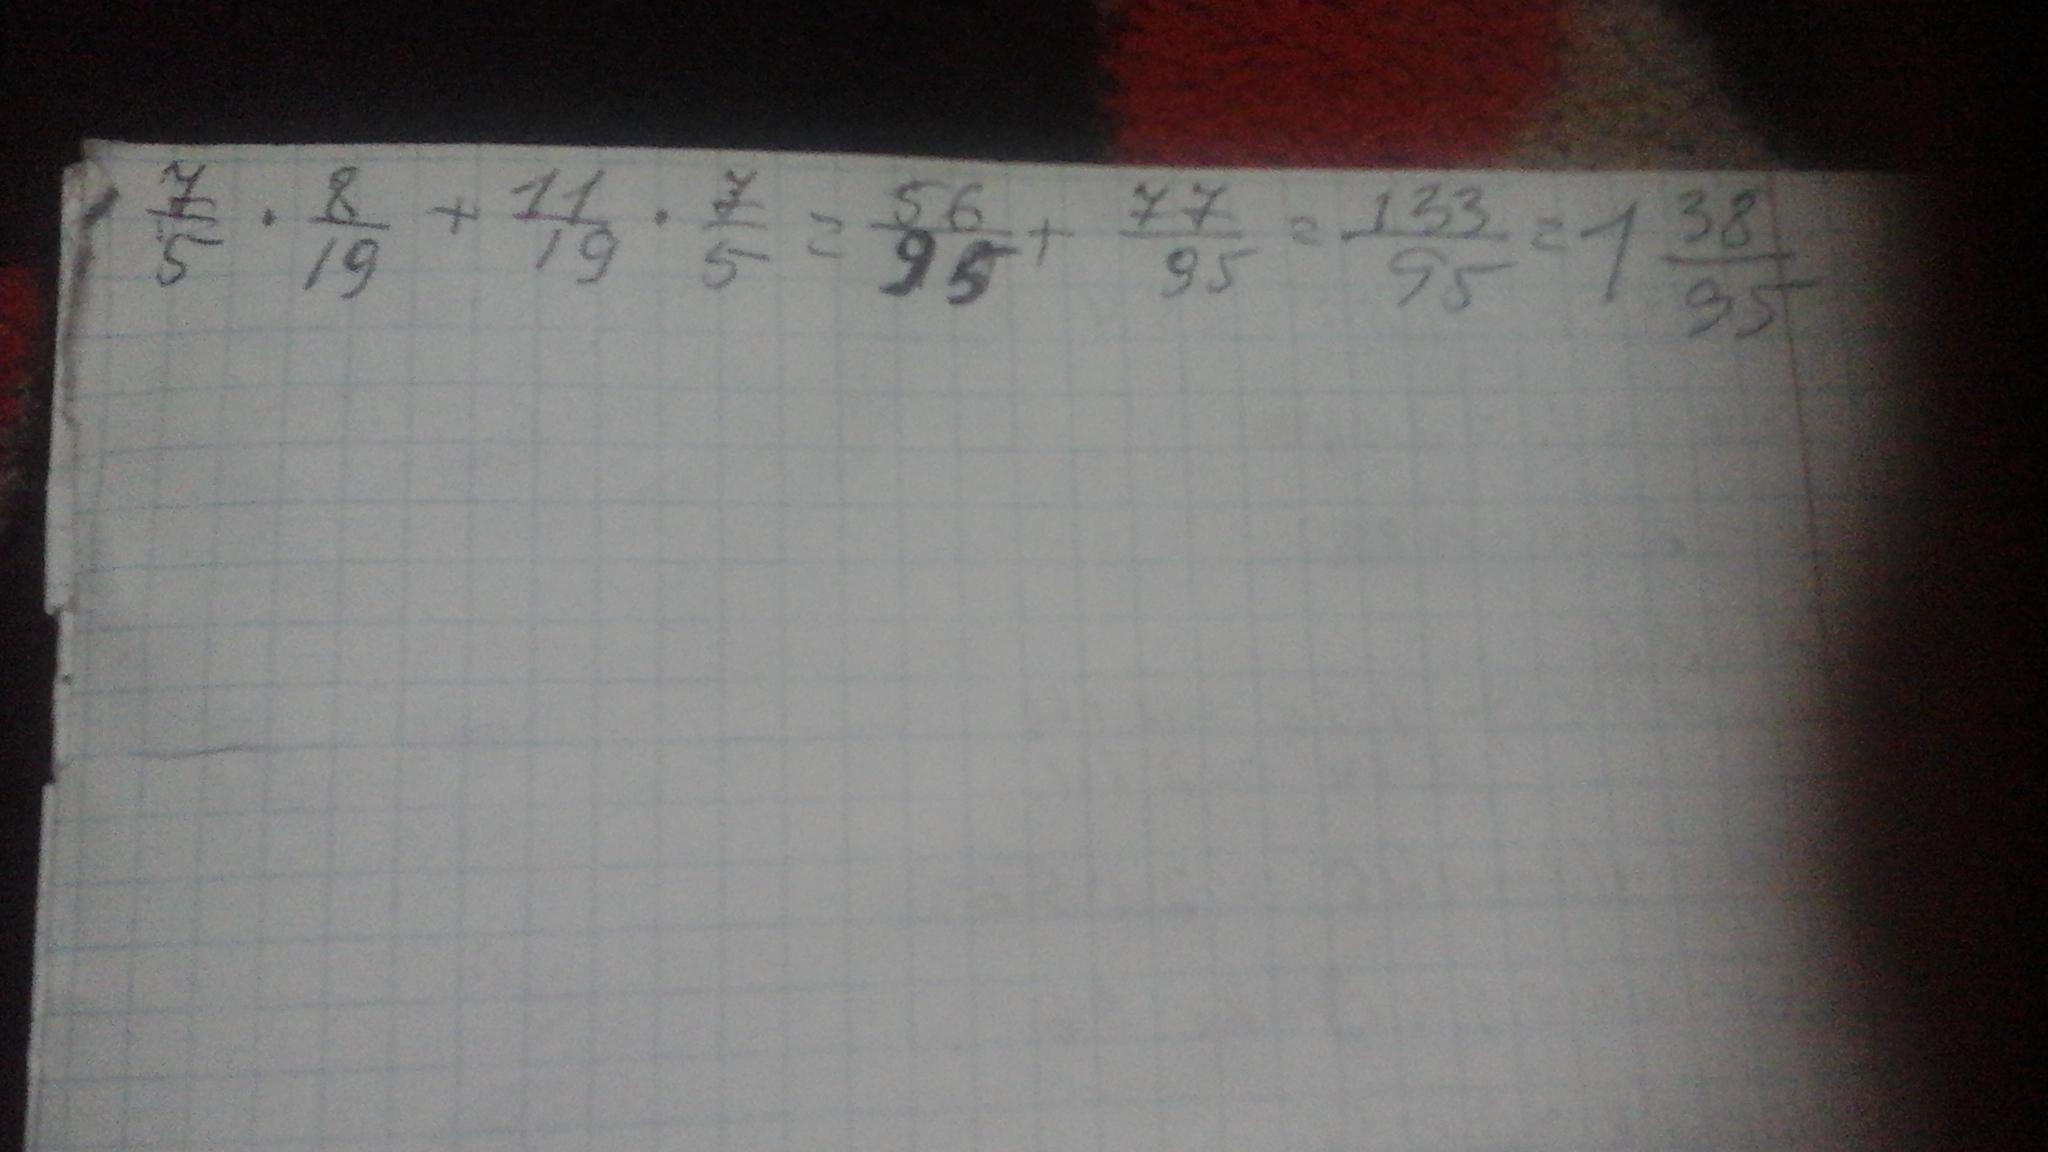 7/5 · 8/19 + 11/19 · 7/5 = 56/95 + 77/95 = 133/95 = 1 38/95